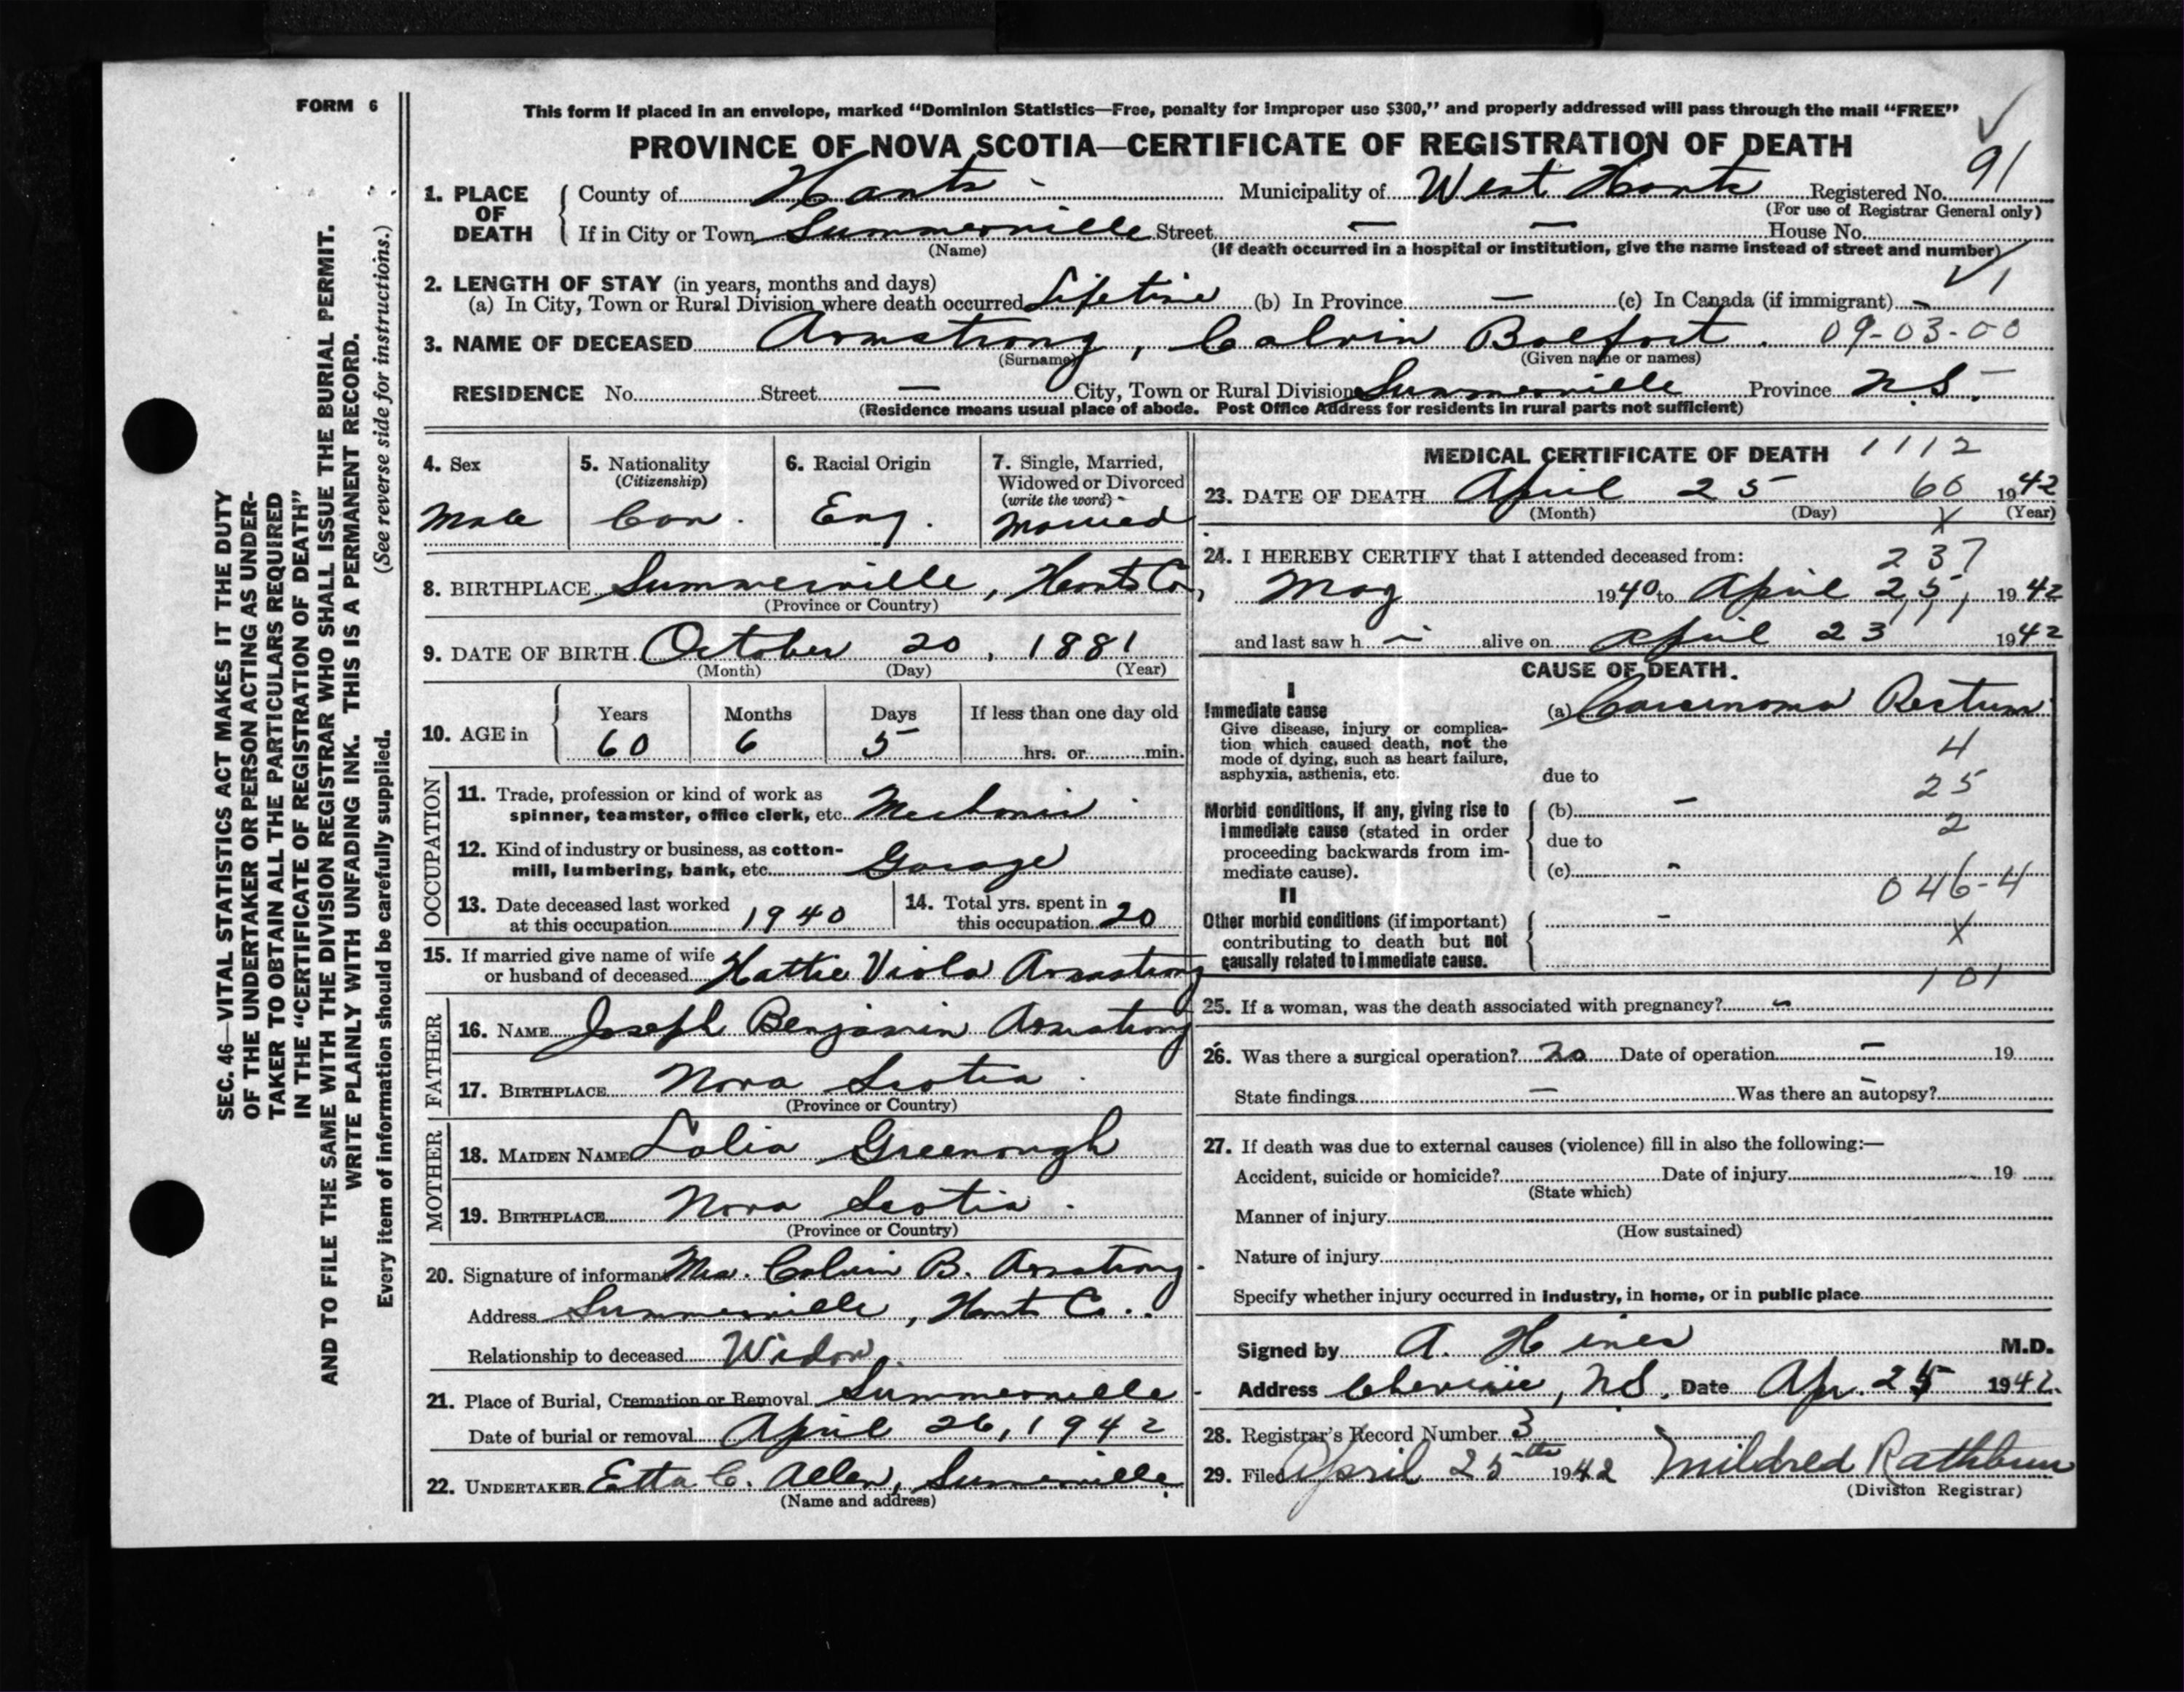 FORM 6
This form if placed in an envelope, marked “Dominion Statistics—Free, penalty for improper use $300,” and properly addressed will pass through the mail “FREE”
PROVINCE OF NOVA SCOTIA—CERTIFICATE OF REGISTRATION OF DEATH
1. PLACE OF DEATH
County of Hants Municipality of West Hants Registered No. 91
(For use of Registrar General only)
If in City or Town Summerville Street — — House No.
(Name) (If death occurred in a hospital or institution, give the name instead of street and number)
2. LENGTH OF STAY (in years, months and days)
(a) In City, Town or Rural Division where death occurred Lifetime (b) In Province — (c) In Canada (if immigrant) -
3. NAME OF DECEASED Armstrong, Calvin Belfort. 09-03-00
(Surname) (Given name or names)
RESIDENCE No. Street — City, Town or Rural Division Summerville Province N.S.
(Residence means usual place of abode. Post Office Address for residents in rural parts not sufficient)
4. Sex
Male
5. Nationality
(Citizenship)
Can.
6. Racial Origin
Eng.
7. Single, Married,
Widowed or Divorced
(write the word)
Married
8. BIRTHPLACE Summerville, Hants Co,
(Province or Country)
9. DATE OF BIRTH October 20, 1881
(Month) (Day) (Year)
10. AGE in
Years Months Days If less than one day old
60 6 5 hrs. or min.
OCCUPATION
11. Trade, profession or kind of work as
spinner, teamster, office clerk, etc. Mechanic
12. Kind of industry or business, as cotton-
mill, lumbering, bank, etc. Garage
13. Date deceased last worked
at this occupation 1940
14. Total yrs. spent in
this occupation 20
15. If married give name of wife
or husband of deceased Hattie Viola Armstrong
FATHER
16. NAME Joseph Benjamin Armstrong
17. BIRTHPLACE Nova Scotia
(Province or Country)
MOTHER
18. MAIDEN NAME Lalia Greenough
19. BIRTHPLACE Nova Scotia.
(Province or Country)
20. Signature of informant Mrs. Calvin B. Armstrong.
Address Summerville, Hants Co.
Relationship to deceased Widow.
21. Place of Burial, Cremation or Removal Summerville
Date of burial or removal April 26, 1942
22. UNDERTAKER Etta C. Allen, Summerville.
(Name and address)
MEDICAL CERTIFICATE OF DEATH 1112
23. DATE OF DEATH April 25 60 1942
(Month) (Day) (Year)
X
24. I HEREBY CERTIFY that I attended deceased from:
237
May 1940 to April 25, 1942
and last saw h i alive on April 23 1942
CAUSE OF DEATH.
I
Immediate cause
Give disease, injury or complica-
tion which caused death, not the
mode of dying, such as heart failure,
asphyxia, asthenia, etc.
(a) Carcinoma Rectum
4
due to
25
Morbid conditions, if any, giving rise to
immediate cause (stated in order
proceeding backwards from im-
mediate cause).
(b) -
2
due to
(c) -
046-4
II
Other morbid conditions (if important)
contributing to death but not
causally related to immediate cause.
-
X
101
25. If a woman, was the death associated with pregnancy? -
26. Was there a surgical operation? No Date of operation — 19
State findings — Was there an autopsy? -
27. If death was due to external causes (violence) fill in also the following:—
Accident, suicide or homicide? Date of injury 19
(State which)
Manner of injury
(How sustained)
Nature of injury
Specify whether injury occurred in industry, in home, or in public place
Signed by A. Hines M.D.
Address Cheverie, N.S. Date Apr. 25 1942.
28. Registrar's Record Number 3
29. Filed April 25th 1942 Mildred Rathbun
(Division Registrar)
SEC. 46—VITAL STATISTICS ACT MAKES IT THE DUTY
OF THE UNDERTAKER OR PERSON ACTING AS UNDER-
TAKER TO OBTAIN ALL THE PARTICULARS REQUIRED
IN THE “CERTIFICATE OF REGISTRATION OF DEATH”
AND TO FILE THE SAME WITH THE DIVISION REGISTRAR WHO SHALL ISSUE THE BURIAL PERMIT.
WRITE PLAINLY WITH UNFADING INK. THIS IS A PERMANENT RECORD.
Every item of information should be carefully supplied. (See reverse side for instructions.)